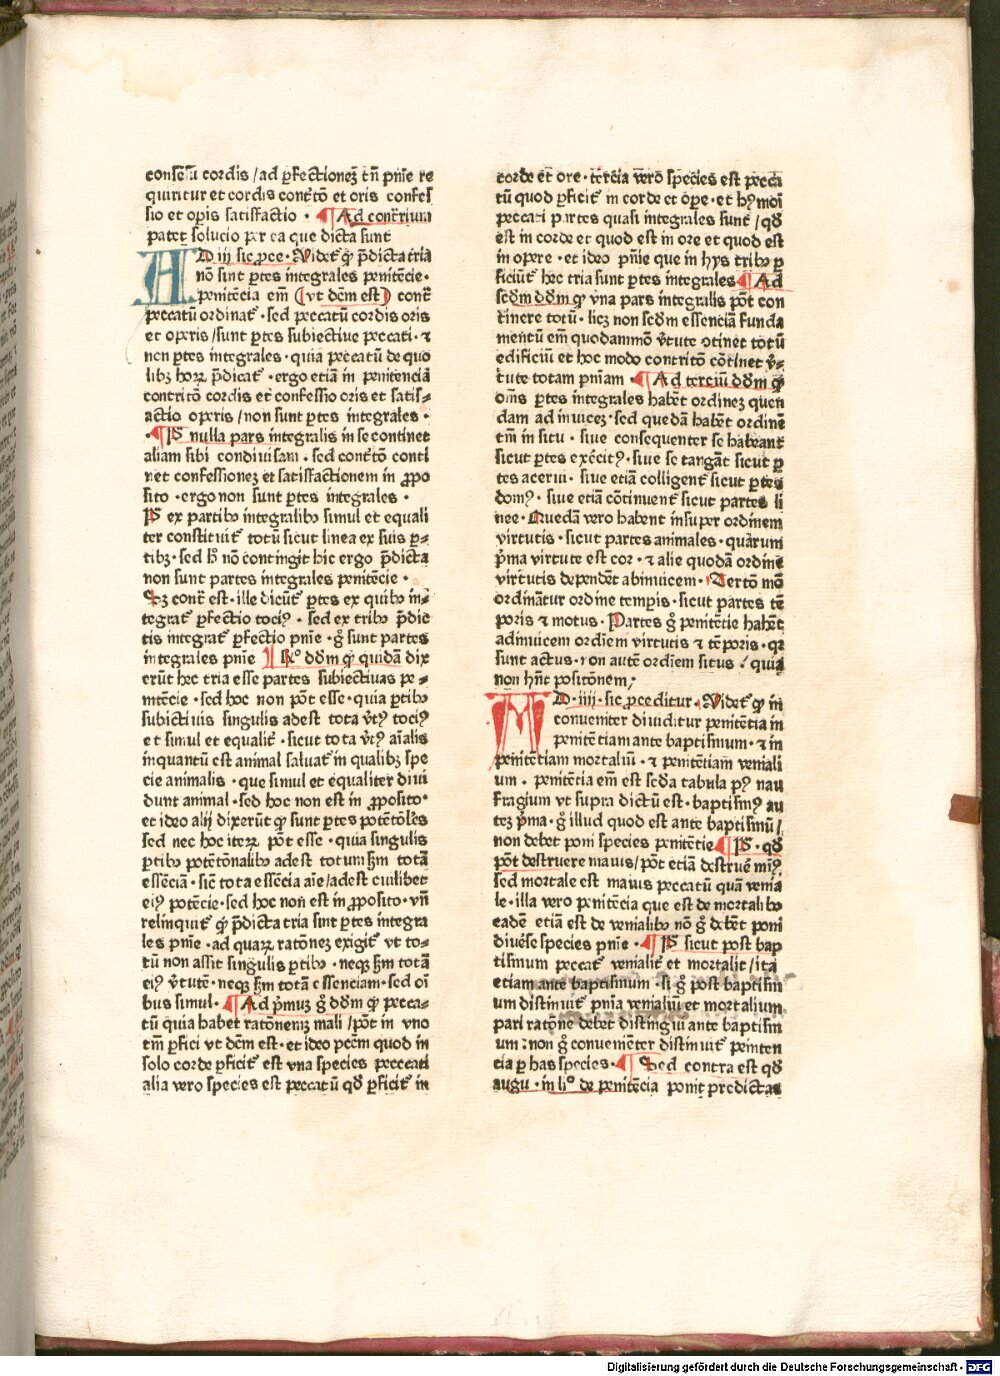 consēsū cordis / ad ꝑfectionez̄ tn̄ pn̄ie re
quiritur et cordis cont̄to et oris confes
sio et oꝑis satisfactio · ¶ Ad contr̄ium
patet solucio per ea que dicta sunt
AD iij sic ꝓce · Videt᷑ ꝙ p̄dicta tria
nō sint ꝑtes integrales penitēcie ·
penitēcia em̄ (vt dc̄m est) cont᷑
peccatū ordinat᷑ · sed peccatū cordis oris
et operis / sunt ꝑtes subiectiue peccati · ⁊
non ꝑtes integrales · quia peccatū de quo
libꝫ hoꝝ p̄dicat᷑ · ergo etiā in penitenciā
contritō cordis et confessio oris et satisf⸗
actio operis / non sunt ꝑtes integrales ·
· ¶ P̄ nulla pars integralis in se continet
aliam sibi condiuisam · sed cont̄to conti
net confessionez et satisfactionem in ꝓpo
sito · ergo non sunt ꝑtes integrales ·
P̄ ex partibꝰ integralibꝰ simul et equali
ter constituit᷑ totū sicut linea ex suis ꝑ⸗
tibꝫ · sed h̄ nō contingit hic ergo p̄dicta
non sunt partes integrales penitēcie ·
Sꝫ cont᷑ est · ille dicūt᷑ ꝑtes ex quibꝰ in⸗
tegrat᷑ ꝑfectio tociꝰ · sed ex tribꝰ p̄dic
tis integrat᷑ ꝑfectio pn̄ie · g̊ sunt partes
integrales pn̄ie ¶ Rº ddm ꝙ quidā dix
erūt hec tria esse partes subiectiuas pe⸗
nitēcie · sed hoc non pōt esse · quia ꝑtibꝰ
subiectiuis singulis adest tota v̄tꝰ tociꝰ
et simul et equalit᷑ · sicut tota v̄tꝰ aīalis
inquantū est animal saluat᷑ in qualibꝫ spe
cie animalis · que simul et equaliter diui
dunt animal · sed hoc non est in ꝓposito ·
et ideo alij dixerūt ꝙ sunt ꝑtes potētōles
sed nec hoc iteꝝ pōt esse · quia singulis
ꝑtibꝰ potētōnalibꝰ adest totum s̄m totā
essēciā · sic̄ tota essēcia aīe / adest cuilibet
eiꝰ potēcie · sed hoc non est in ꝓposito · vn̄
relinquit᷑ ꝙ p̄dicta tria sint ꝑtes integra
les pn̄ie · ad quaꝝ ratōnez exigit᷑ vt to⸗
tū non assit singulis ꝑtibꝰ · neqꝫ s̄m totā
eiꝰ v̄tutē · neqꝫ s̄m totā essenciam · sed oī
bus simul · ¶ Ad p̄muꝫ g̊ ddm ꝙ pecca⸗
tū quia habet ratōnemꝫ mali / pōt in vno
tm̄ ꝑfici vt dc̄m est · et ideo pcc̄m quod in
solo corde ꝑficit᷑ est vna species peccati
alia vero species est peccatū qd̄ ꝑficit᷑ in
corde et ore · tercia vero species est pecca
tū quod ꝑficit᷑ in corde et oꝑe · et hꝰ moī
peccati partes quasi integrales sunt / qd̄
est in corde et quod est in ore et quod est
in opere · et ideo pn̄ie que in hys tribꝰ ꝑ
ficiūt᷑ hec tria sunt ꝑtes integrales ¶ Ad
scd̄m ddm ꝙ vna pars integralis pōt con
tinere totū · licꝫ non scd̄m essenciā funda
mentū em̄ quodammō v̄tute ↄtinet totū
edificiū et hoc modo contritō cōtinet v̄⸗
tute totam pn̄iam · ¶ Ad terciū ddm ꝙ
om̄s ꝑtes integrales habēt ordinez quen
dam adinuicez · sed quedā habēt ordinē
tm̄ in situ · siue consequenter se habeant
sicut ꝑtes exēcitꝰ · siue se tangāt sicut ꝑ
tes acerui · siue etiā colligent᷑ sicut ꝑtes
domꝰ · siue etiā cōtinuent᷑ sicut partes li
nee · Quedā vero habent insuper ordinem
virtutis · sicut partes animales · quarum
p̄ma virtute est cor · ⁊ alie quodā ordine
virtutis dependēt abinuicem · Tertō mō
ordināntur ordine temꝑis · sicut partes tē
poris ⁊ motus · Partes g̊ penitētie habēt
adinuicem ordīem virtutis ⁊ tēporis · qꝛ
sunt actus · non autē ordīem situs / quia
non hn̄t positōnem ·
AD · iiij · sic ꝓceditur · Videt᷑ ꝙ in
conueniēter diuiditur penitētia in
penitētiam ante baptismum · ⁊ in
penitētiam mortaliū · ⁊ penitētiam veniali
um · penitētia em̄ est scd̄a tabula pꝰ nau
fragium vt supra dictū est · baptismꝰ au
teꝫ p̄ma · g̊ illud quod est ante baptismū /
non debet poni species penitētie ¶ P̄ · qd̄
pōt destruere maius / pōt etiā destruē minꝰ
sed mortale est maius peccatū quā venia
le · illa vero penitēcia que est de mortalibꝰ
eadē etiā est de venialibꝰ nō g̊ debēt poni
diuēse species pn̄ie · ¶ P̄ sicut post bap
tismum peccat᷑ venialit᷑ et mortalit᷑ / ita
etiam ante baptismum · si g̊ post baptism
um distinuit᷑ pn̄ia venialiū et mortalium
pari ratōne debet distingui ante baptism
um : non g̊ conueniēter distinuit᷑ peniten
cia ꝑ has species · ¶ Sed contra est qd̄
augu · in liº de penitēcia ponit predictas
Digitalisierung gefördert durch die Deutsche Forschungsgemeinschaft · DFG